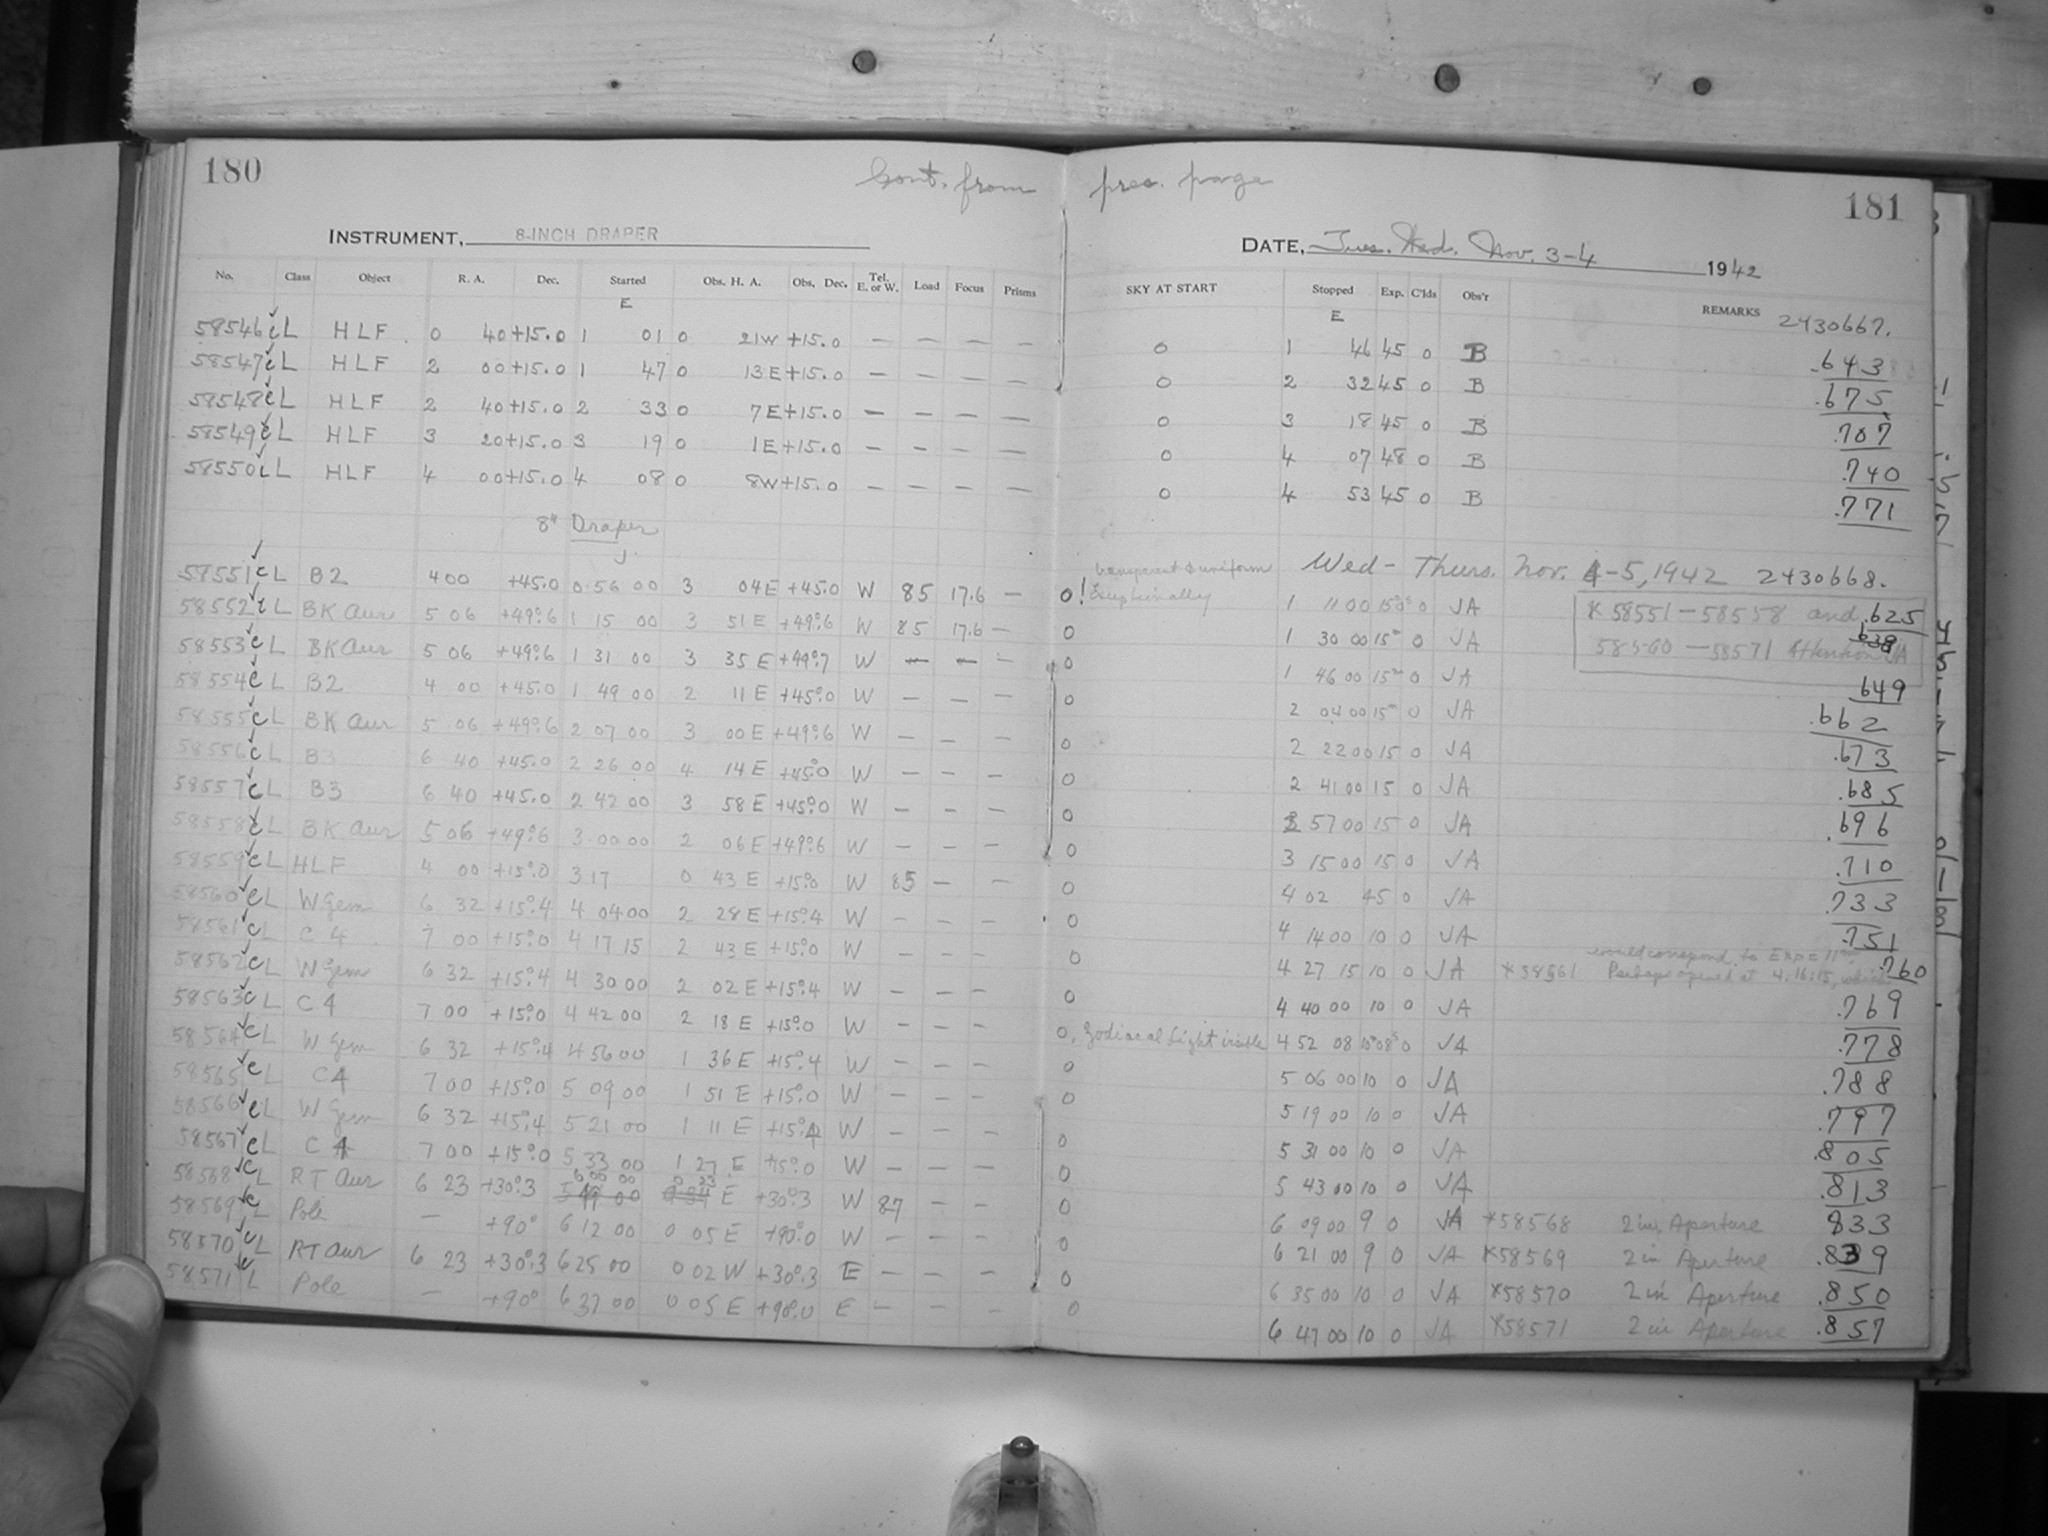 180
Cont. from prec. page
181
INSTRUMENT, 8-INCH DRAPER
DATE, Tues. Wed. Nov. 3-4 1942
No. Class Object R. A. Dec. Started Obs. H. A. Obs. Dec. Tel. E. or W. Load Focus Prisms SKY AT START Stopped Exp. C'lds Obs'r REMARKS
E E 2430667.
58546 c L HLF 0 40 +15.0 1 01 0 21W +15.0 — — — — 0 1 46 45 0 B .643
58547 c L HLF 2 00 +15.0 1 47 0 13E +15.0 — — — — 0 2 32 45 0 B .675
58548 c L HLF 2 40 +15.0 2 33 0 7E +15.0 — — — — 0 3 18 45 0 B .707
58549 c L HLF 3 20 +15.0 3 19 0 1E +15.0 — — — — 0 4 07 48 0 B .740
58550 c L HLF 4 00 +15.0 4 08 0 8W +15.0 — — — — 0 4 53 45 0 B .771
8" Draper
J
Wed - Thurs. Nov. 4-5, 1942 2430668.
58551 c L B2 4 00 +45.0 0 56 00 3 04E +45.0 W 85 17.6 — 0! Exceptionally transparent & uniform 1 11 00 15 0 JA * 58551 — 58558 and .625
58552 c L BK Aur 5 06 +49°.6 1 15 00 3 51E +49°.6 W 85 17.6 — 0 1 30 00 15m 0 JA 58560 — 58571 Attention JA .638
58553 c L BK Aur 5 06 +49°.6 1 31 00 3 35E +49°.7 W — — — 0 1 46 00 15m 0 JA .649
58554 c L B2 4 00 +45.0 1 49 00 2 11E +45°.0 W — — — 0 2 04 00 15m 0 JA .662
58555 c L BK Aur 5 06 +49°.6 2 07 00 3 00E +49°.6 W — — — 0 2 22 00 15 0 JA .673
58556 c L B3 6 40 +45.0 2 26 00 4 14E +45°.0 W — — — 0 2 41 00 15 0 JA .685
58557 c L B3 6 40 +45.0 2 42 00 3 58E +45°.0 W — — — 0 2 57 00 15 0 JA .696
58558 c L BK Aur 5 06 +49°.6 3 00 00 2 06E +49°.6 W — — — 0 3 15 00 15 0 JA .710
58559 c L HLF 4 00 +15°.0 3 17 0 43E +15°.0 W 85 — — 0 4 02 45 0 JA .733
58560 c L W Gem 6 32 +15°.4 4 04 00 2 28E +15°.4 W — — — 0 4 14 00 10 0 JA .751
58561 c L C4 7 00 +15°.0 4 17 15 2 43E +15°.0 W — — — 0 4 27 15 10 0 JA *58561 Perhaps opened at 4:16:15, which would correspond to Exp = 11m .760
58562 c L W Gem 6 32 +15°.4 4 30 00 2 02E +15°.4 W — — — 0 4 40 00 10 0 JA .769
58563 c L C4 7 00 +15°.0 4 42 00 2 18E +15°.0 W — — — 0, Zodiacal Light visible 4 52 08 10m08s 0 JA .778
58564 c L W Gem 6 32 +15°.4 4 56 00 1 36E +15°.4 W — — — 0 5 06 00 10 0 JA .788
58565 c L C4 7 00 +15°.0 5 09 00 1 51E +15°.0 W — — — 0 5 19 00 10 0 JA .797
58566 c L W Gem 6 32 +15°.4 5 21 00 1 11E +15°.4 W — — — 0 5 31 00 10 0 JA .805
58567 c L C4 7 00 +15°.0 5 33 00 1 27E +15°.0 W — — — 0 5 43 00 10 0 JA .813
58568 c L RT Aur 6 23 +30°.3 6 00 00 0 23 E +30°.3 W 87 — — 6 09 00 9 0 JA *58568 2 in. Aperture 833
58569 c L Pole — +90° 6 12 00 0 05E +90°.0 W — — — 0 6 21 00 9 0 JA *58569 2 in Aperture .839
58570 c L RT Aur 6 23 +30°.3 6 25 00 0 02W +30°.3 E — — — 0 6 35 00 10 0 JA *58570 2 in Aperture .850
58571 c L Pole — +90° 6 37 00 0 05E +90°.0 E — — — 0 6 47 00 10 0 JA *58571 2 in Aperture .857